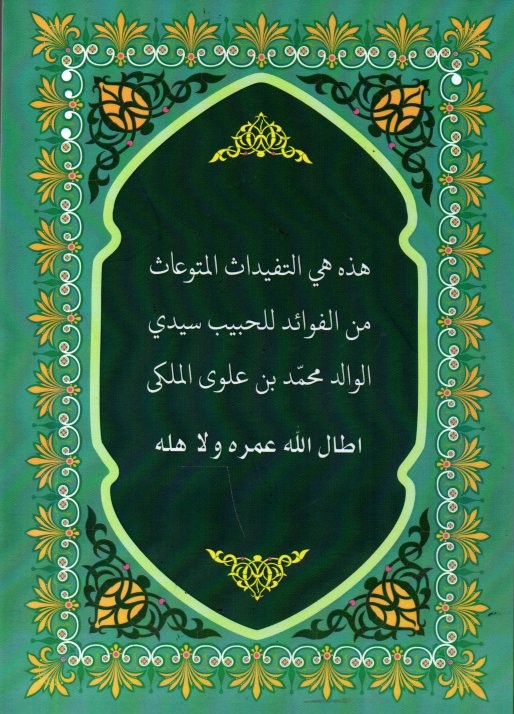 هذه هي التفيداث المتوعاث
من الفوائد للحبيب سيدي
الوالد محمّد بن علوى الملكى
اطال الله عمره ولا هله